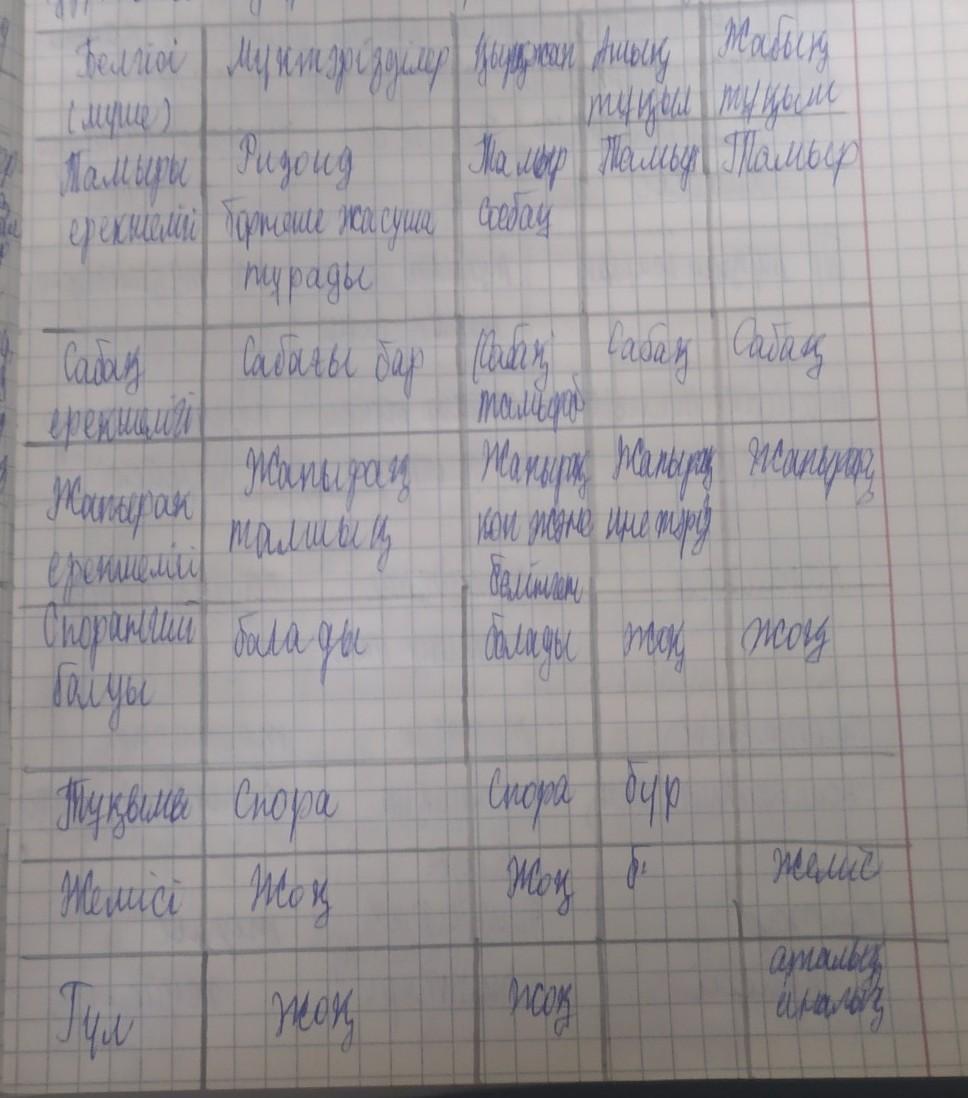 Белгісі Мүктәрізділер Қырықжан Ашық Жабық
(мүше) тұқым тұқым
Тамыры Ризоид Тамыр Тамыр Тамыр
ерекшелігі жасуша сабақ
тұрады
Сабақ Сабағы бар Сабақ Сабақ Сабақ
ерекшелігі
Жапырақ Жапырақ Жапырақ Жапырақ
Жапырақ талшық көп және ине тәрізді
ерекшелігі бөлінген
Спорангий болады болады жоқ жоқ
болуы
Тұқымы Спора Спора бүр
Жемісі Жоқ Жоқ б. Жеміс
аталық
Гүл Жоқ Жоқ аналық